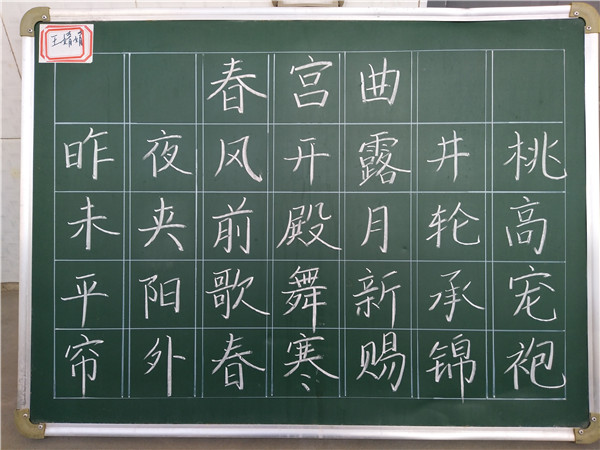 春宫曲
昨夜风开露井桃
未夹前殿月轮高
平阳歌舞新承宠
帘外春寒赐锦袍